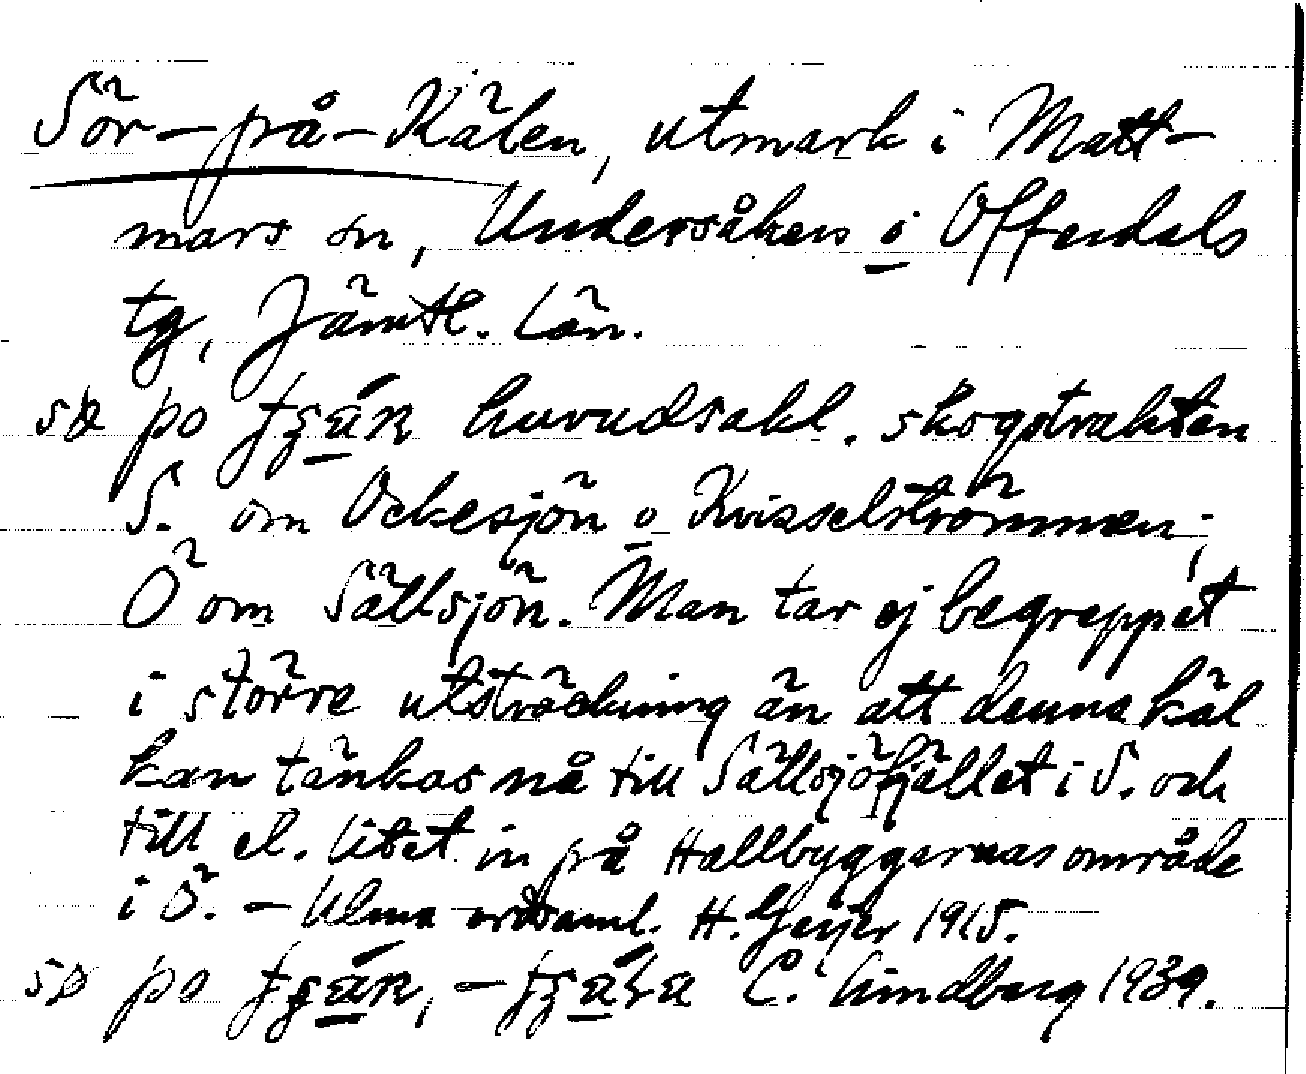 Sör-på-Kälen, utmark i Matt-
mars sn, Undersåkers i Offerdals
tg, Jämtl. län.
po huvudsakl. skogstrakten
S. om Ockesjön o Kvisselströmmen;
Ö om Sällsjön. Man tar ej begreppet
i större utsträckning än att denna käl
kan tänkas nå till Sällsjöfjället i S. och
till el. litet in på Hallbyggarnas område
i Ö. - Ulma ordsaml. H. Geijer 1915.
po C. Lindberg 1939.